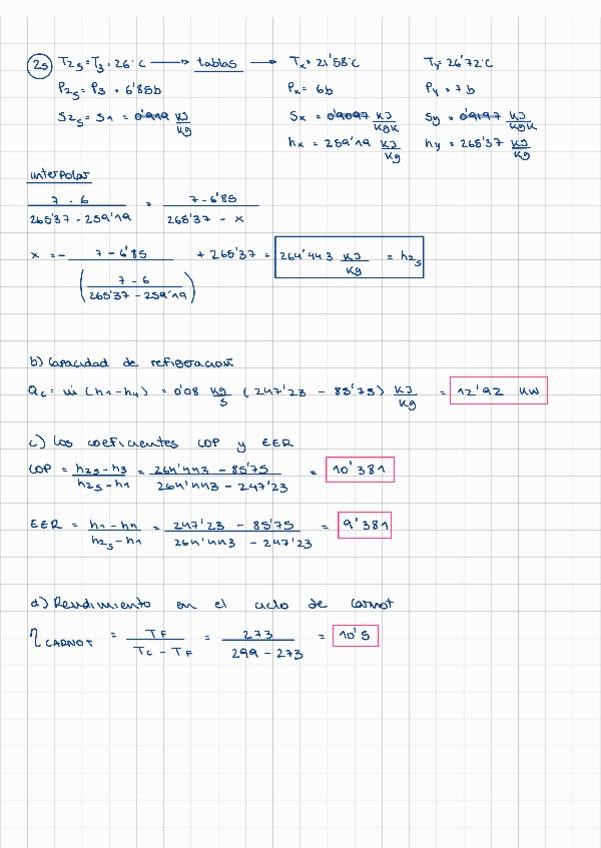 2s T2s = T3 = 26°C → tablas → Tx = 21'58°C Ty = 26'72°C
P2s = P3 = 6'85b Px = 6b Py = 7b
S2s = S1 = 0'919 KJ/Kg Sx = 0'9097 KJ/KgK Sy = 0'9197 KJ/KgK
hx = 259'19 KJ/Kg hy = 265'37 KJ/Kg
interpolar
7 - 6 / 265'37 - 259'19 = 7 - 6'85 / 265'37 - x
x = - 7 - 6'85 / (7 - 6 / 265'37 - 259'19) + 265'37 = 264'443 KJ/Kg = h2s
b) Capacidad de refrigeración
Qc = ṁ (h1 - h4) = 0'08 Kg/s (247'23 - 85'75) KJ/Kg = 12'92 KW
c) Los coeficientes COP y EER
COP = h2s - h3 / h2s - h1 = 264'443 - 85'75 / 264'443 - 247'23 = 10'381
EER = h1 - h4 / h2s - h1 = 247'23 - 85'75 / 264'443 - 247'23 = 9'381
d) Rendimiento en el ciclo de Carnot
η CARNOT = TF / TC - TF = 273 / 299 - 273 = 10'5